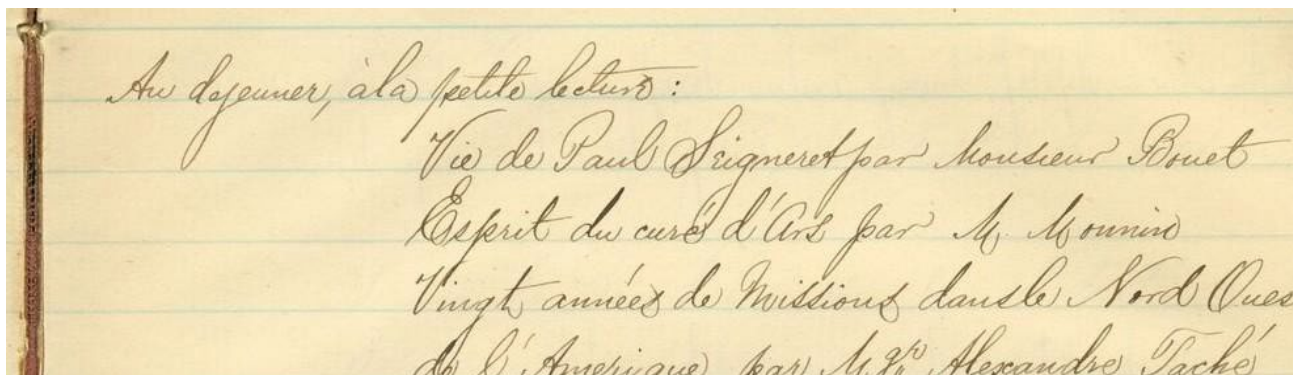 Au dejeuner, à la petite lecture :
Vie de Paul Seigneret par Monsieur Bouet
Esprit du curé d'Ars par M. Monnin
Vingt années de Missions dans le Nord Oues
de l'Amerique par Mgr Alexandre Taché